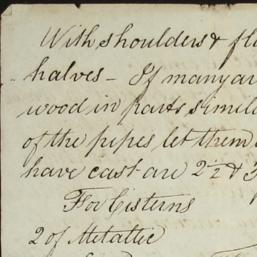 With shoulders & fl
halves - If many ar
wood in parts simila
of the pipes let them
have cast are 2½ & 3
For Cisterns
2 of Metallic